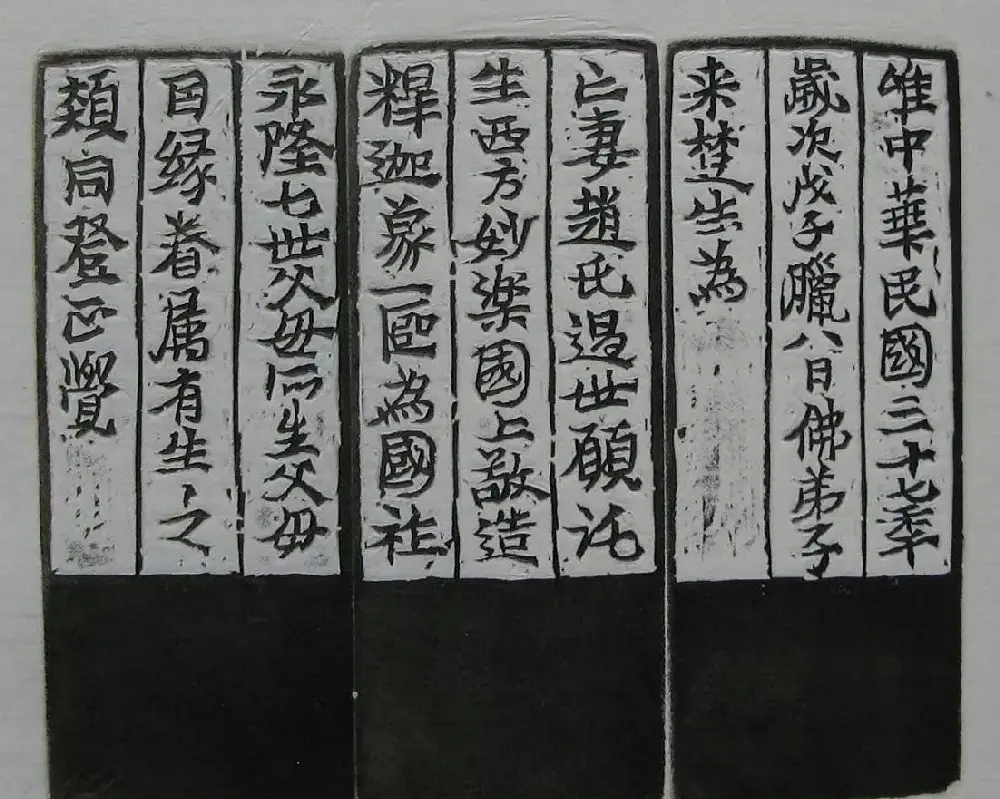 唯中華民國三十七秊
歲次戊子臘八日佛弟子
来楚生為
亡妻趙氏過世願託
生西方妙楽國上敬造
釋迦象一區為國祚
永隆七世父母所生父母
因缘眷属有生〻之
類同登正覺